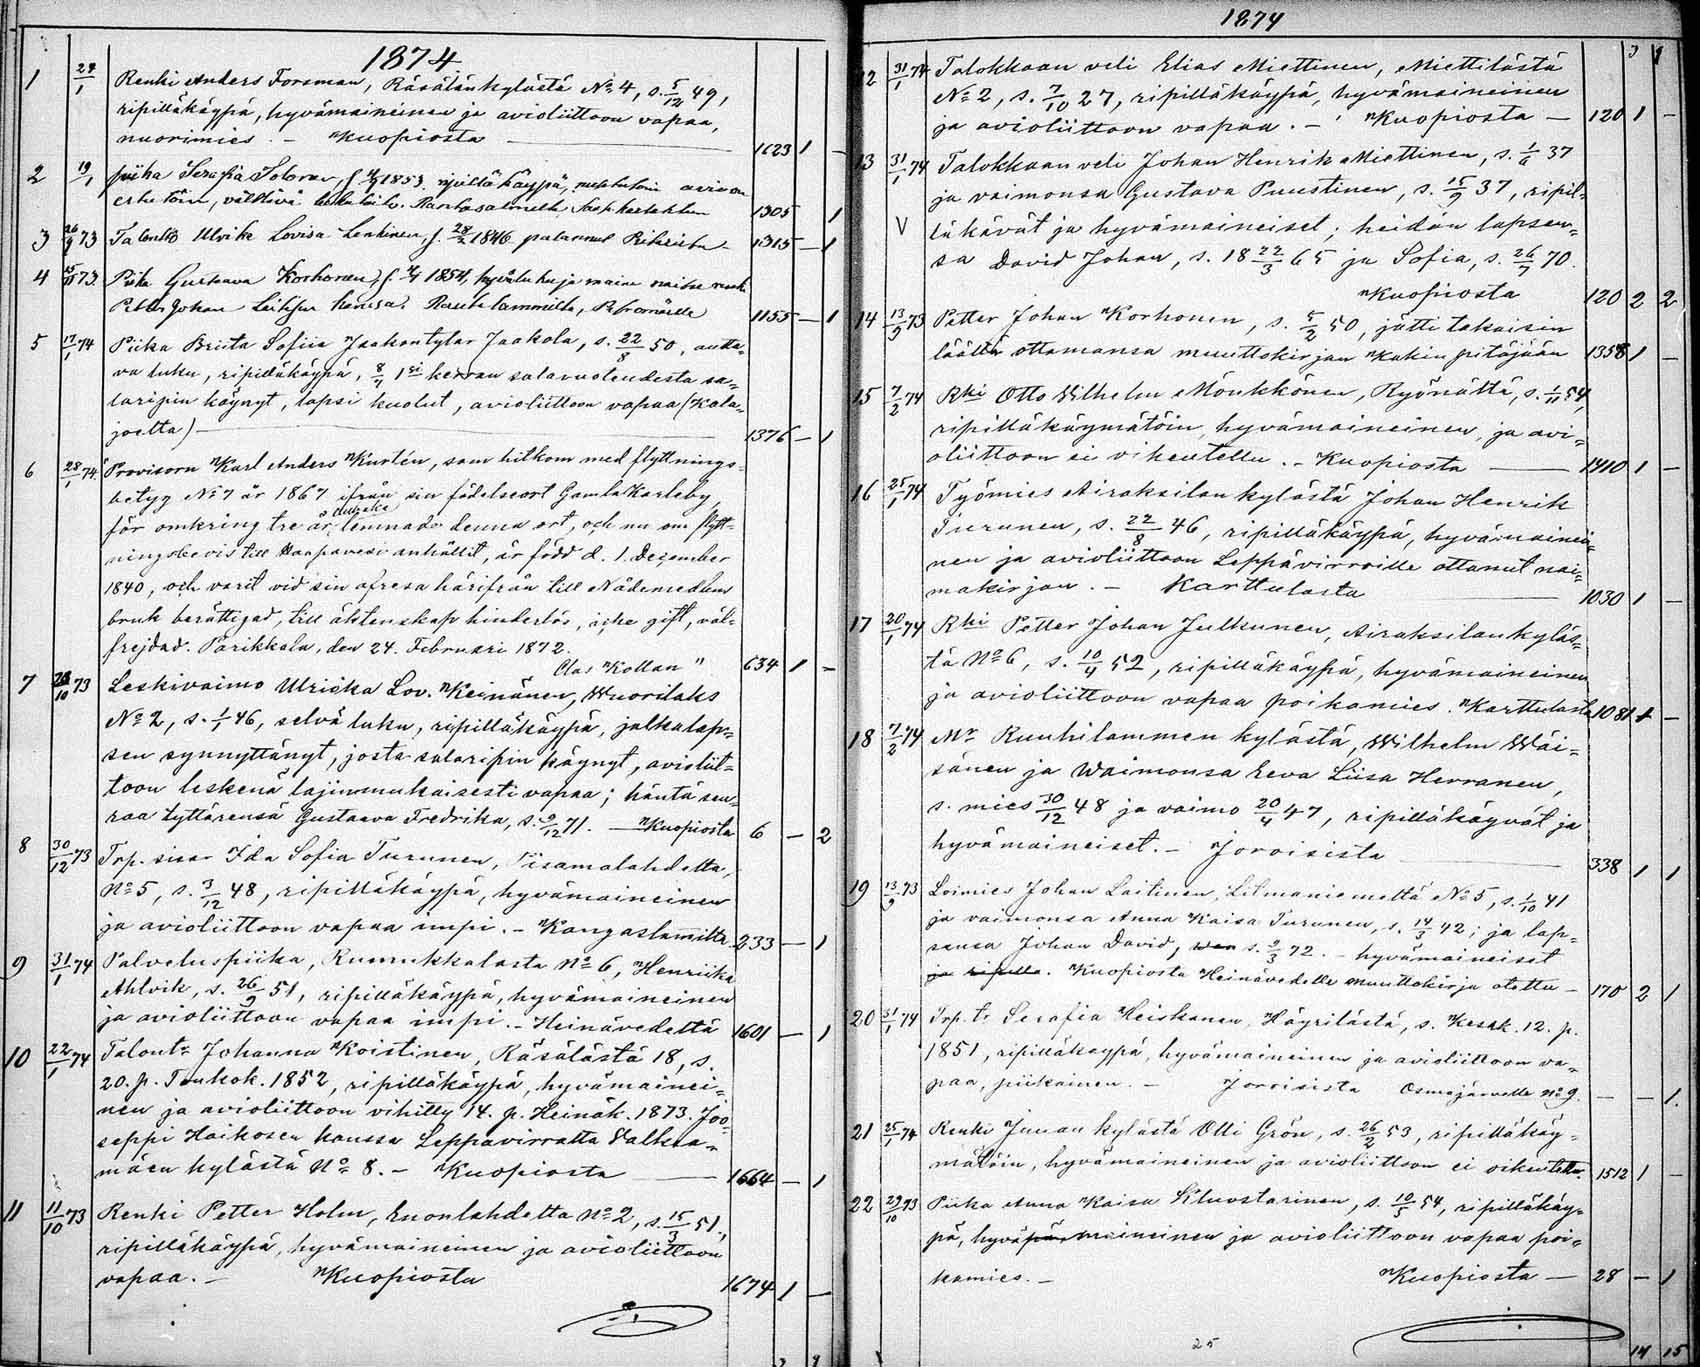 1874
1 24/1 Renki Anders Forsman, Räsälänkylästä No 4, s. 5/12 49,
ripilläkäypä, hyvämaineinen ja avioliittoon vapaa,
nuorimies. - Kuopiosta 1623 1 -
2 19/1 piika Serafia f. 1853. ripillä käypä,
1305 1
3 26/9 73 Ulrika Lovisa f. 28/2 1846 1315 - 1
4 73. Piika Gustava Korhonen, f. 1854,
Petter Johan Rautalammilta, 1155 - 1
5 17/1 74 Piika Briita Sofiia Isakontytär Jaakola, s. 22/8 50, autta-
va luku, ripilläkäypä, 8/4 1si kerran salavuoteudesta sa-
laripin käynyt, lapsi kuolut, avioliittoon vapaa (Kala-
joelta) 1376 - 1
6 28/1 74. "Provisorn Karl Anders Kurtén, som hitkom med flyttnings-
betyg No 7 år 1867 ifrån sin födelseort GamlaKarleby,
för omkring tre år lemnade denna ort, och nu om flytt-
ningsbevis till Haapavesi anhållit, är född d. 1. December
1840, och varit vid sin afresa härifrån till Nådemedlens
bruk berättigad, till äktenskap hinderlös, icke gift, väl-
frejdad. Parikkala, den 24. Februari 1872.
Clas Kollan" 634 1 -
7 28/10 73 Leskivaimo Ulriika Lov. Keinänen, Wuorilaks
No 2, s. 1/1 46, selvä luku, ripilläkäypä, jalkalap-
sen synnyttänyt, josta salaripin käynyt, avioliit-
toon leskenä lajinmukaisesti vapaa; häntä seu-
raa tyttärensä Gustaava Fredrika, s. 9/12 71. - Kuopiosta 6 - 2
8 30/12 73 Trp. sisar Ida Sofia Turunen, Piisamalahdelta,
No 5, s. 3/12 48, ripilläkäypä, hyvämaineinen
ja avioliittoon vapaa impi. - Kangaslammilta 233 - 1
9 31/1 74 Palveluspiika, Rummukkalasta No 6, Henriika
Ahlvik, s. 26/9 51, ripilläkäypä, hyvämaineinen
ja avioliittoon vapaa impi. - Heinävedeltä 1601 - 1
10 22/1 74 Talontr Johanna Koistinen, Räsälästä 18, s.
20. p. Toukok. 1852, ripilläkäypä, hyvämainei-
nen ja avioliittoon vihitty 14. p. Heinäk. 1873. Joo-
seppi Haikosen kanssa Leppävirralta Valkea-
mäen kylästä No 8. - Kuopiosta 1664 - 1
11 11/10 73 Renki Petter Holm, Enonlahdelta No 2, s. 15/3 51.,
ripilläkäypä, hyvämaineinen ja avioliittoon
vapaa. - Kuopiosta 1674 1 -
1874
12 31/1 74 Talokkaan veli Elias Miettinen, Miettilästä
No 2, s. 7/10 27, ripilläkäypä, hyvämaineinen
ja avioliittoon vapaa. - Kuopiosta - 120 1 -
13 31/1 74 Talokkaan veli Johan Henrik Miettinen, s. 1/6 37
ja vaimonsa Gustava Puustinen, s. 15/9 37, ripil-
V läkävät ja hyvämaineiset; heidän lapsen-
sa David Johan, s. 18 22/3 65 ja Sofia, s. 26/7 70.
Kuopiosta 120 2 2
14 13/9 73 Petter Johan Korhonen, s. 5/2 50, jätti takaisin
täältä ottamansa muuttokirjan Kakin pitäjään 1358 1 -
15 7/2 74 Rki Otto Wilhelm Mönkkönen, Ryönältä, s. 1/11 54,
ripilläkäymätöin, hyvämaineinen, ja avi-
oliittoon ei oikeutettu. - Kuopiosta 1410 1 -
16 25/1 74 Työmies Airaksilan kylästä Johan Henrik
Turunen, s. 22/8 46, ripilläkäypä, hyvämainei-
nen ja avioliittoon Leppävirroille ottanut nai-
makirjan. - Karttulasta 1030 1 -
17 20/1 74 Rki Petter Johan Julkunen, Airaksilan kyläs-
tä No 6, s. 10/4 52, ripilläkäypä, hyvämaineinen
ja avioliittoon vapaa poikamies. Karttulasta 1081 1 -
18 7/2 74 Mr Ruuhilammen kylästä, Wilhelm Wäi-
sänen ja Waimonsa Eeva Liisa Herranen,
s. mies 30/12 48 ja vaimo 20/4 47, ripilläkäyvät ja
hyvämaineiset. - Joroisista 338 1 1
19 13/9 73 Loimies Johan Laitinen, Litmaniemeltä No 5, s. 1/10 41
ja vaimonsa Anna Kaisa Turunen, s. 14/3 42; ja lap-
sensa Johan David, s. 2/3 72. - hyvämaineiset
ja ripillä. Kuopiosta Heinävedelle muuttokirja otettu - 170 2 1
20 31/1 74 Trp. tr Serafia Heiskanen, Häyrilästä, s. Kesäk. 12. p.
1851, ripilläkäypä, hyvämaineinen ja avioliittoon va-
paa, piikainen. - Joroisista Osmajärvelle No 9. - - 1.
21 25/1 74 Renki Juuan kylästä Olli Grön, s. 26/2 53, ripilläkäy-
mätöin, hyvämaineinen ja avioliittoon ei oikeutettu. 1512 1 -
22 29/10 73 Piika Anna Kaisa Kluostarinen, s. 10/5 54, ripilläkäy-
pä, hyväpä, maineinen ja avioliittoon vapaa poi-
kamies. - Kuopiosta - 28 - 1
25
14 15